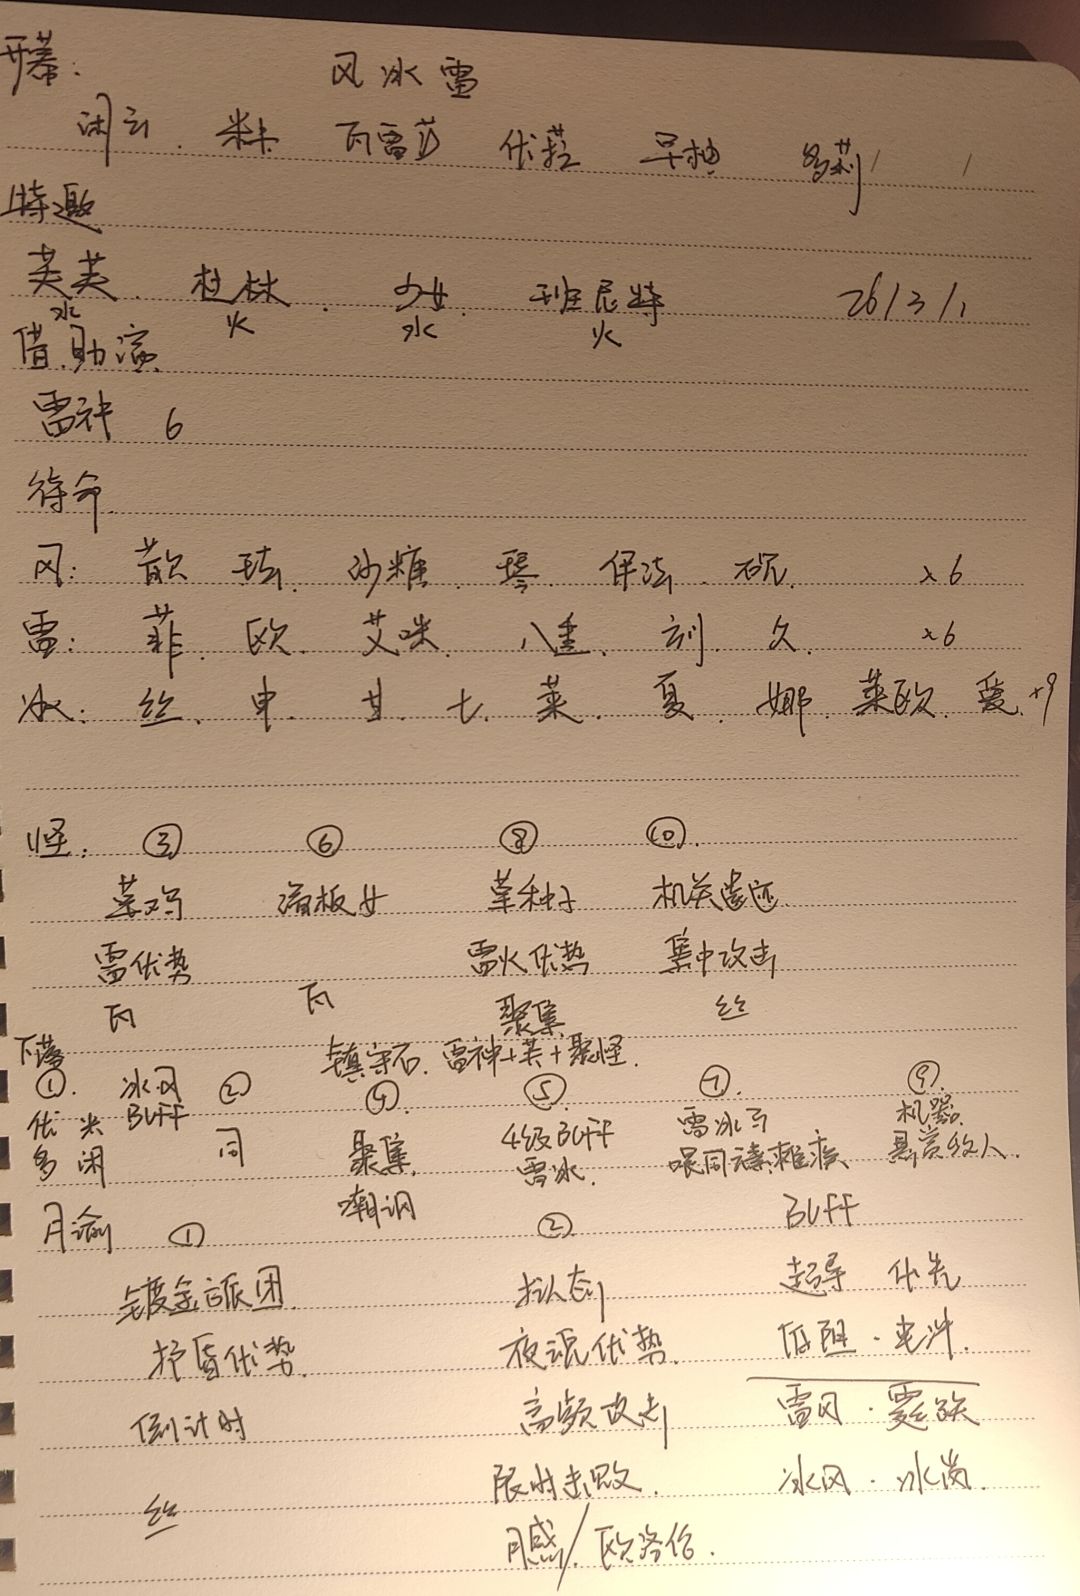 开幕: 风冰雷
闲云. 米卡 瓦雷莎 优菈 早柚 多莉
特邀
芙芙. 杜林. 少女. 班尼特 26/3/1
水 火 水 火
借.助演
雷神 6
待命.
风: 散 珐. 沙糖. 琴. 伊法. 砚. ×6
雷: 菲. 欧. 艾咪. 八重. 刻. 久. ×6
冰: 丝. 申. 甘. 七. 莱. 夏. 娜. 莱欧. 爱. +9
怪: ③ ⑥ ⑧ ⑩.
草鸡 滑板女 草种子 机关遗迹
雷优势 雷火优势 集中攻击
瓦 瓦 聚集 丝
下落 镇守石. 雷神+芙+聚怪.
①. 冰风 ② ④. ⑤ ⑦. ⑨.
优 米 BUFF 同 聚集. 4级BUFF 雷冰 机器.
多 闲 嘲讽 雷冰. 悬赏敌人.
月谕 ① ② BUFF
镀金旅团. 拟态 超导 优先
护盾优势. 夜魂优势. 低阻. 电冲.
倒计时 高频攻击 雷风.
丝 限时击败. 冰风. 冰岗.
月感/欧洛伦.